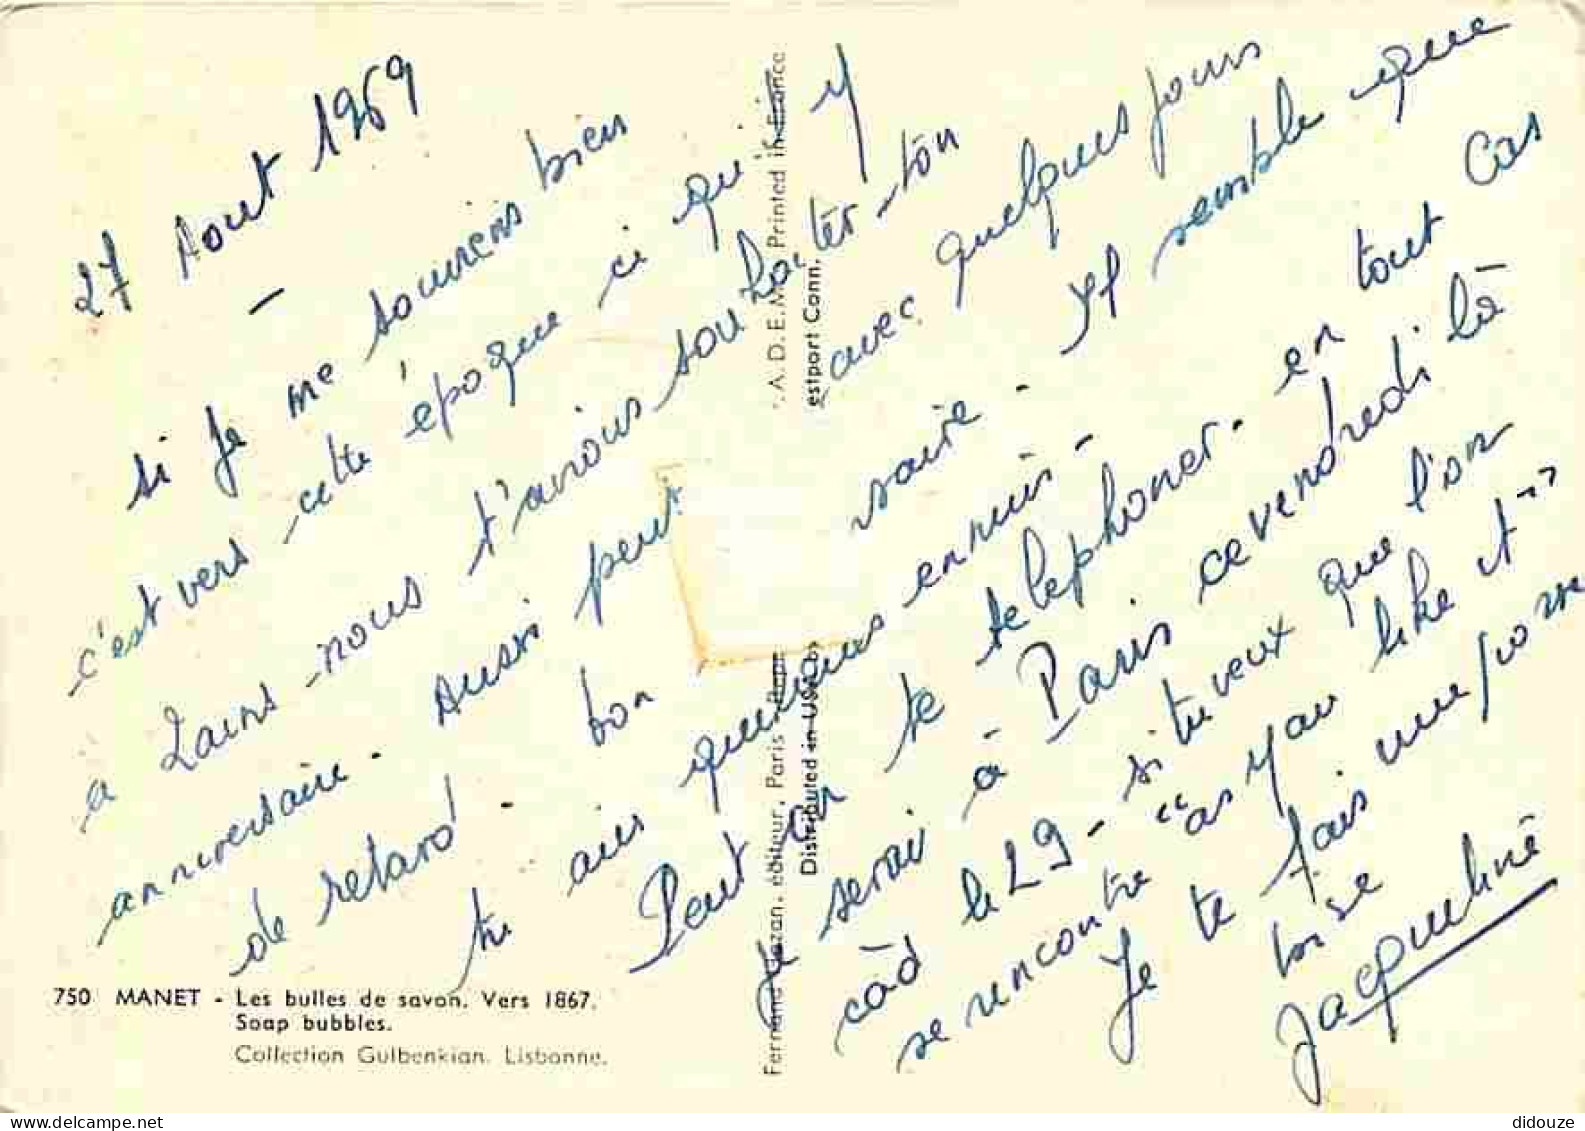 27 Aout 1969
si Je me souviens bien
c'est vers cette époque ci qu' y
a 2 ans nous t'avions souhaiter ton
anniversaire. Aussi peut
avec quelques jours
de retard. bon
saire. Il semble que
tu ais quelques ennuis.
Peut on te telephoner. en tout cas
Je serai à Paris ce vendredi là
càd le 29 - si tu veux que l'on
se rencontre "as you like it"
Je te fais une grosse
bise
Jacqueline
750 MANET - Les bulles de savon. Vers 1867.
Soap bubbles.
Collection Gulbenkian. Lisbonne.
Fernand Hazan, éditeur, Paris
A.D.E.M. Printed in France
Distributed in USA by
estport Conn.
didouze